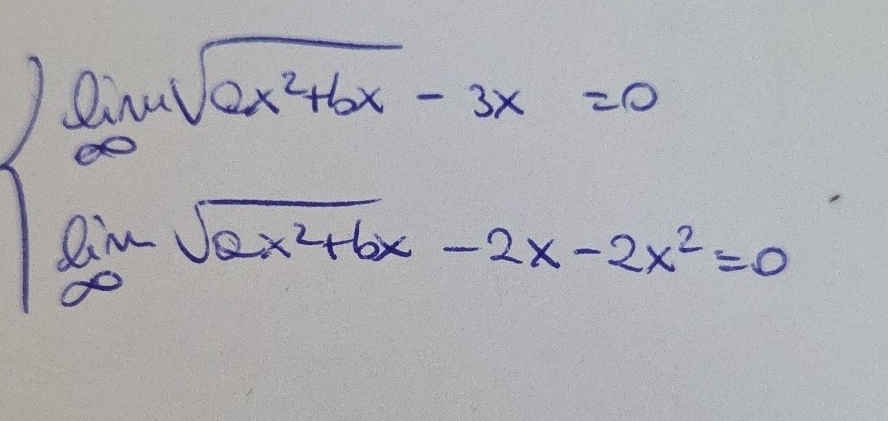 lim √ax²+bx - 3x = 0
∞
lim √ax²+bx - 2x - 2x² = 0
∞